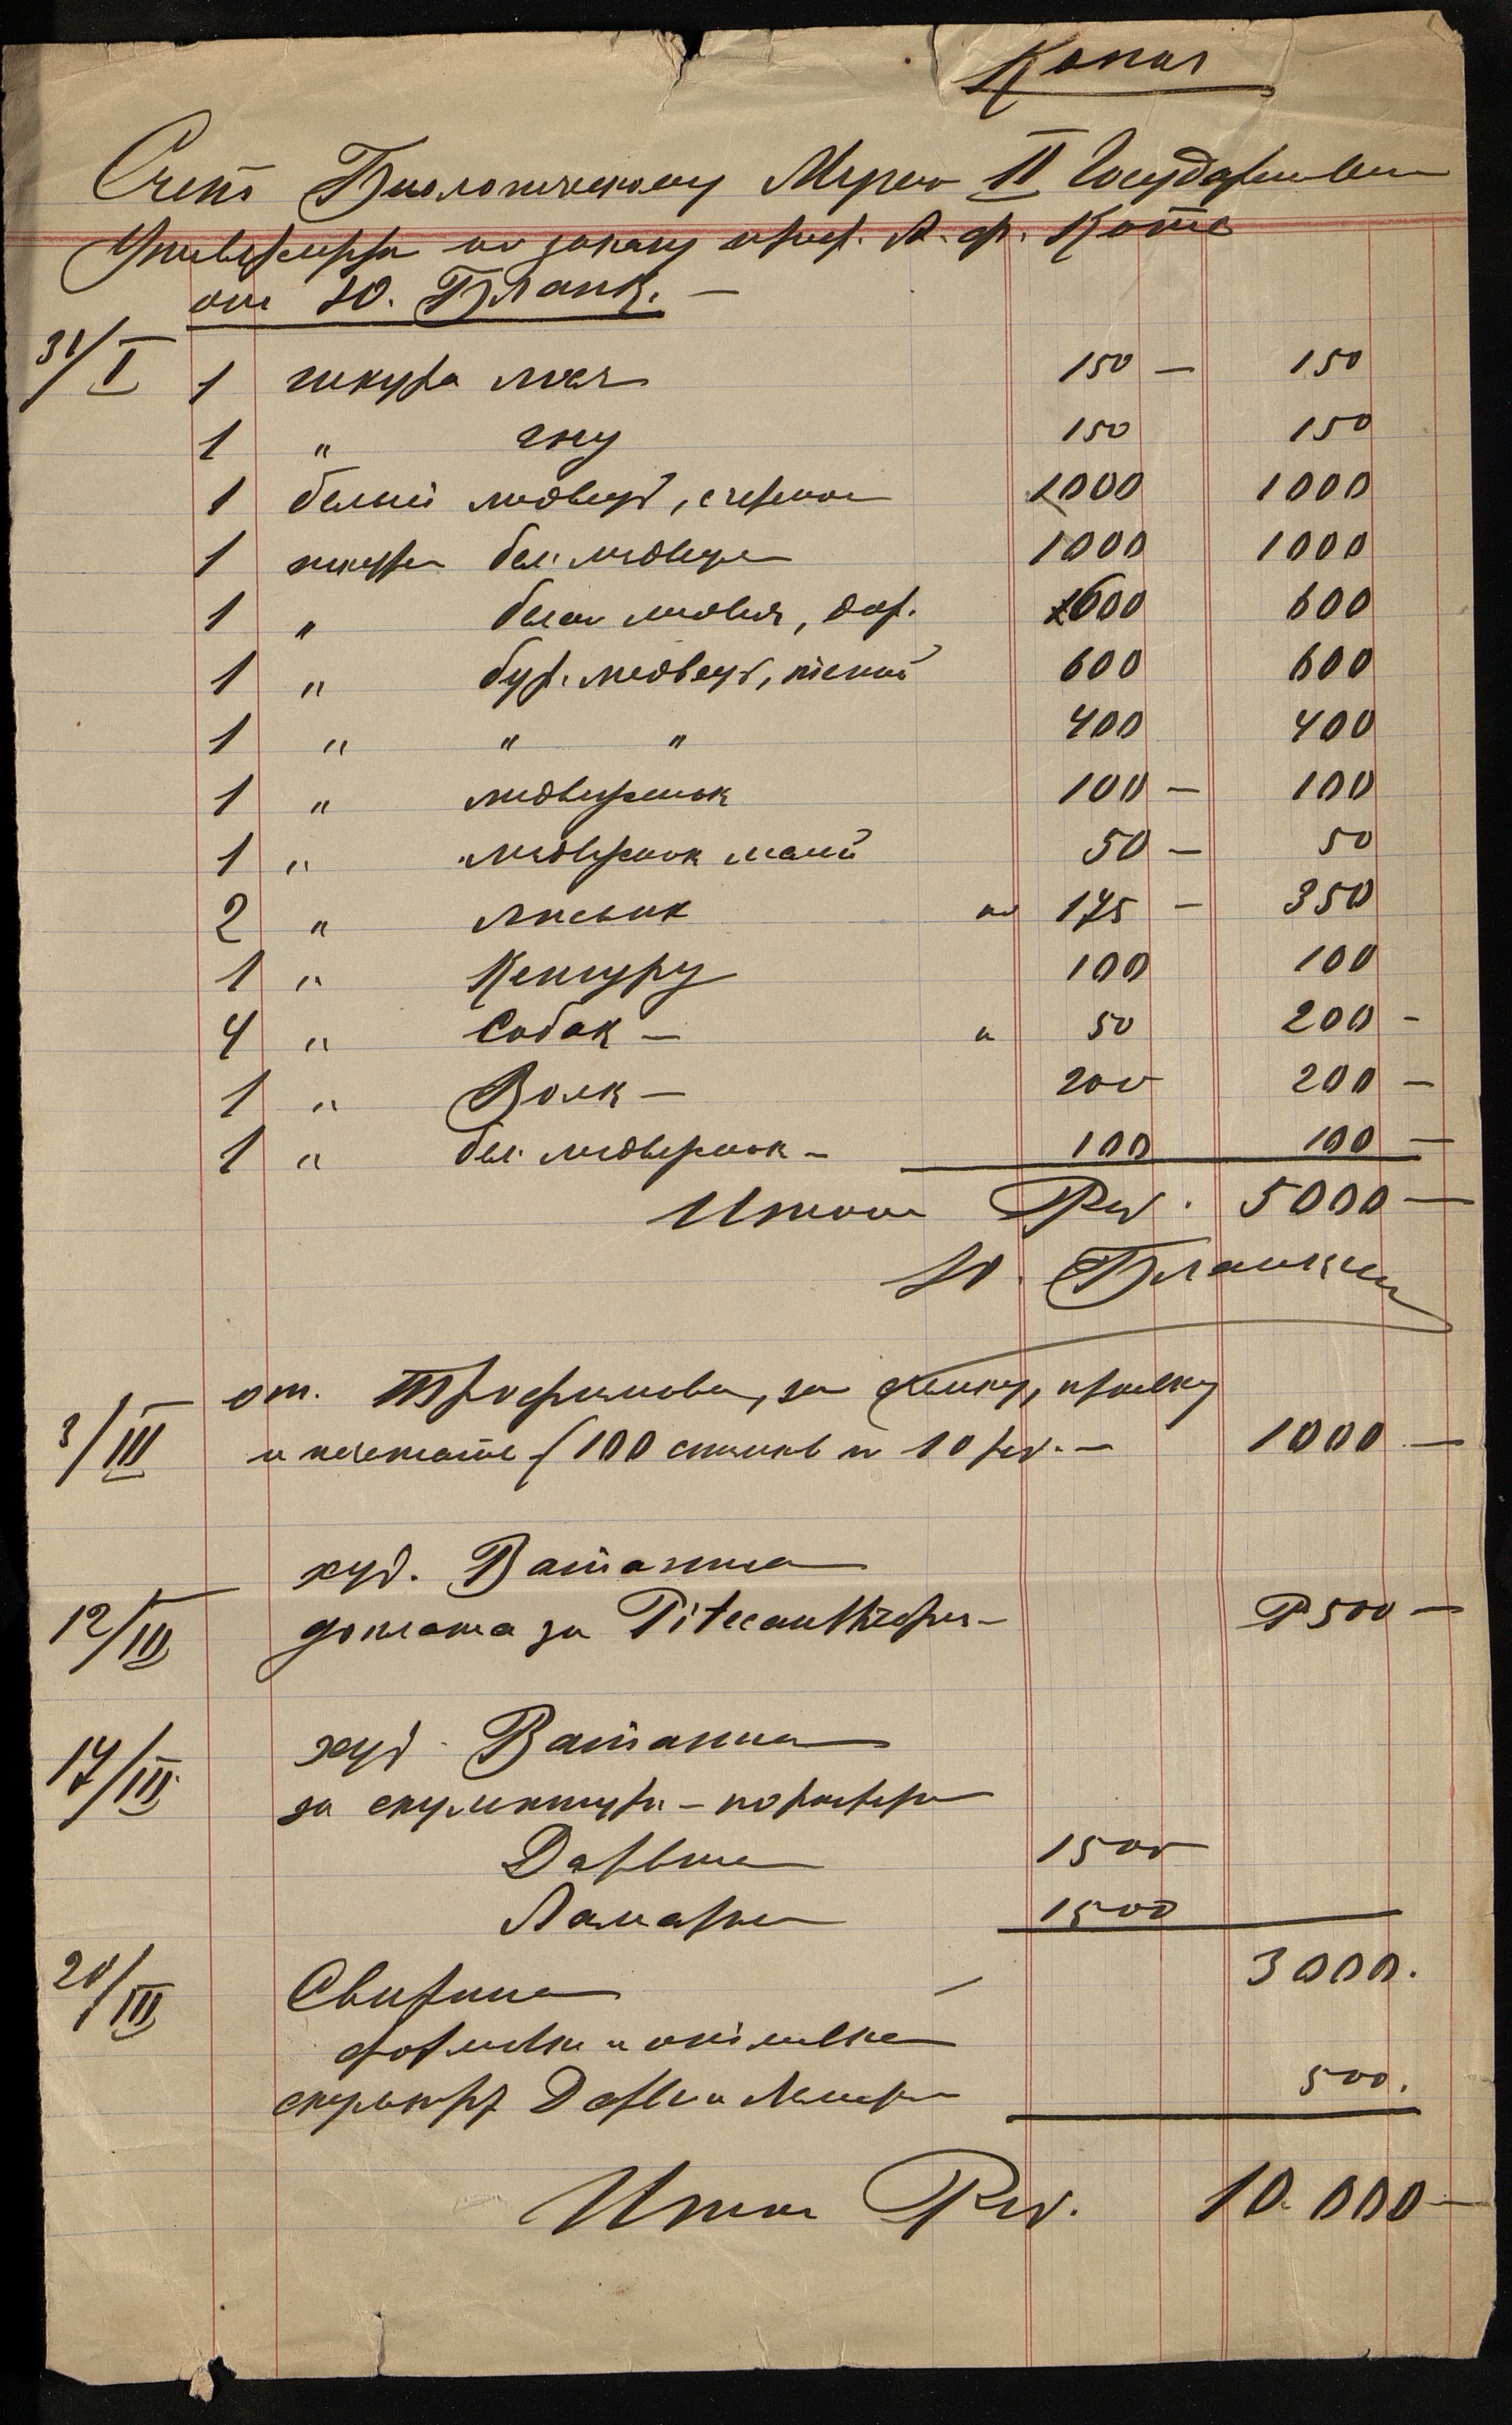 Копия
Счет Биологическому Музею II Государствен
Университета по заказу проф. А. Ф. Котс
от Ю. Бланк. —
31/I 1 шкура лося 150 — 150
1 " гну 150 150
1 белый медведь, с черепом 1000 1000
1 шкура бел. медведя 1000 1000
1 " белого медведя, 600 600
1 " бур. медведь, 600 600
1 " " " 400 400
1 " медвежонок 100 — 100
1 " медвежонок малый 50 — 50
2 " по 175 — 350
1 " Кенгуру 100 100
4 " Собак — " 50 200 —
1 " Волк — 200 200 —
1 " бел. медвежонок — 100 100 —
Итого Руб. 5000 —
Ю. Бланк
3/III от. Трофимова, за
и печатание (100 снимков по 10 руб. — 1000 —
худ. Ватагина
12/III доплата за Pitecanthropus — Р 500 —
17/III худ. Ватагина
за скульптуры —
Дарвина 1500
Ламарка 1500
3000.
20/III Свирина —
формовка и отливка
скульптур Дарв. и Ламарка 500.
Итого Руб. 10.000 —